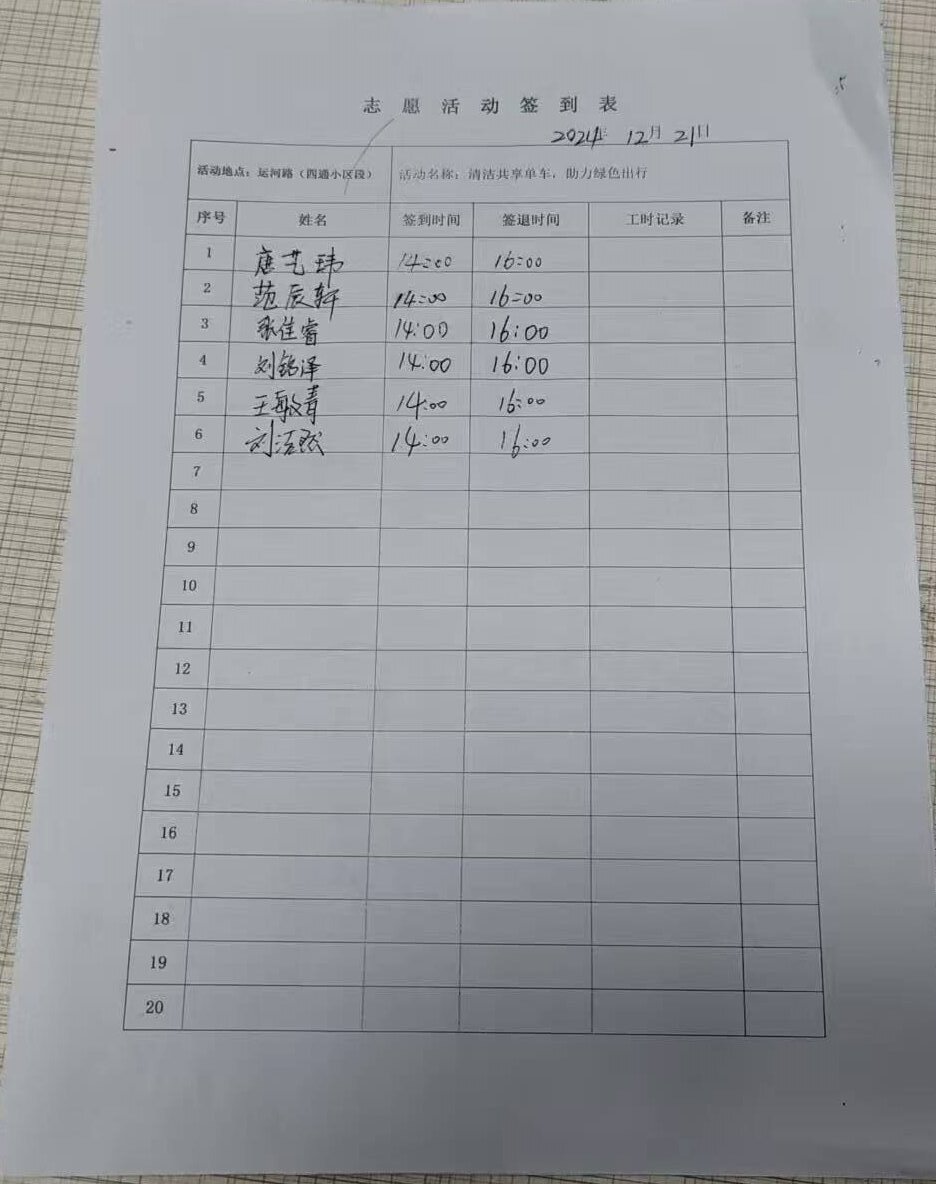 志愿活动签到表
2024年 12月 21日
活动地点：运河路（四通小区段） 活动名称：清洁共享单车，助力绿色出行
序号 姓名 签到时间 签退时间 工时记录 备注
1 唐艺玮 14:00 16:00
2 范辰轩 14:00 16:00
3 张佳睿 14:00 16:00
4 刘铭泽 14:00 16:00
5 王敏青 14:00 16:00
6 刘 14:00 16:00
7
8
9
10
11
12
13
14
15
16
17
18
19
20